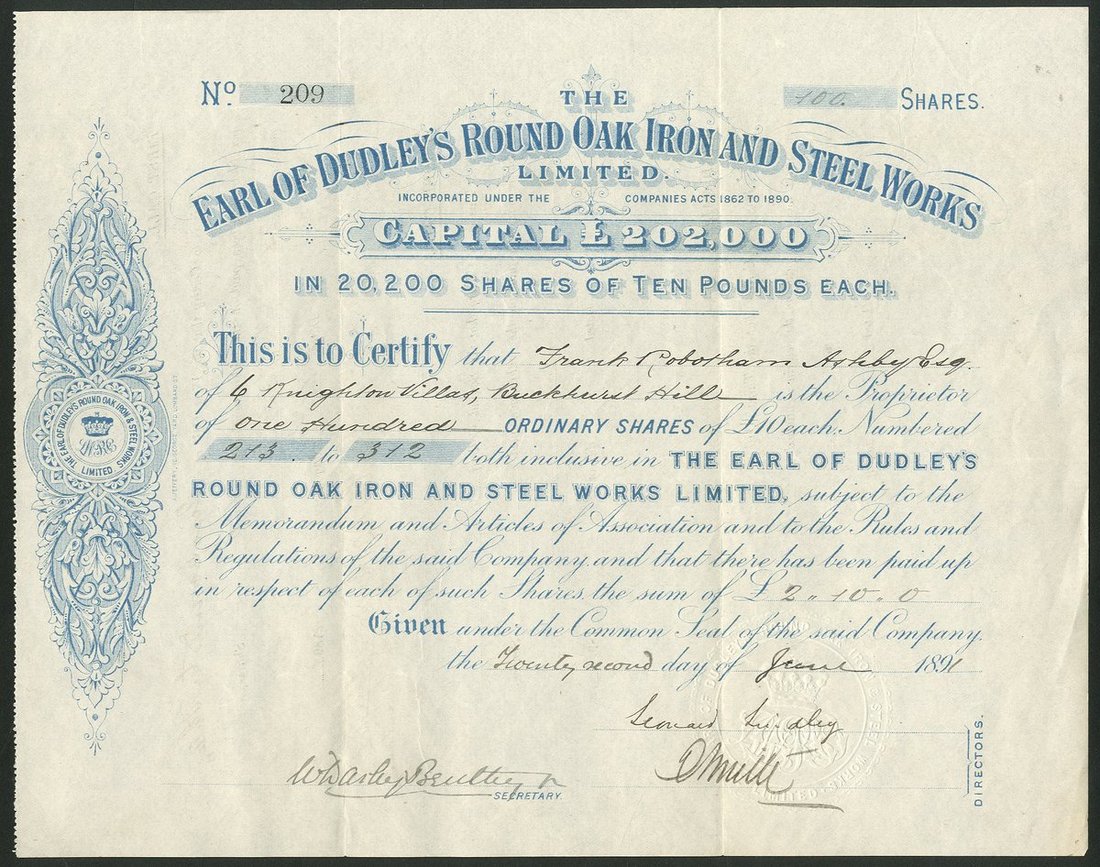 No. 209
100. SHARES.
THE
EARL OF DUDLEY'S ROUND OAK IRON AND STEEL WORKS
LIMITED.
INCORPORATED UNDER THE COMPANIES ACTS 1862 TO 1890.
CAPITAL £202,000
IN 20,200 SHARES OF TEN POUNDS EACH.
This is to Certify that Frank Robotham Ashby Esq.
of 6 Knighton Villas, Buckhurst Hill is the Proprietor
of One Hundred ORDINARY SHARES of £10 each. Numbered
213. to 312 both inclusive in THE EARL OF DUDLEY'S
ROUND OAK IRON AND STEEL WORKS LIMITED, subject to the
Memorandum and Articles of Association and to the Rules and
Regulations of the said Company and that there has been paid up
in respect of each of such Shares the sum of £2..10..0
Given under the Common Seal of the said Company.
the Twenty second day of June 1891
Leonard Lindley
SECRETARY.
DIRECTORS.
THE EARL OF DUDLEY'S ROUND OAK IRON & STEEL WORKS
LIMITED